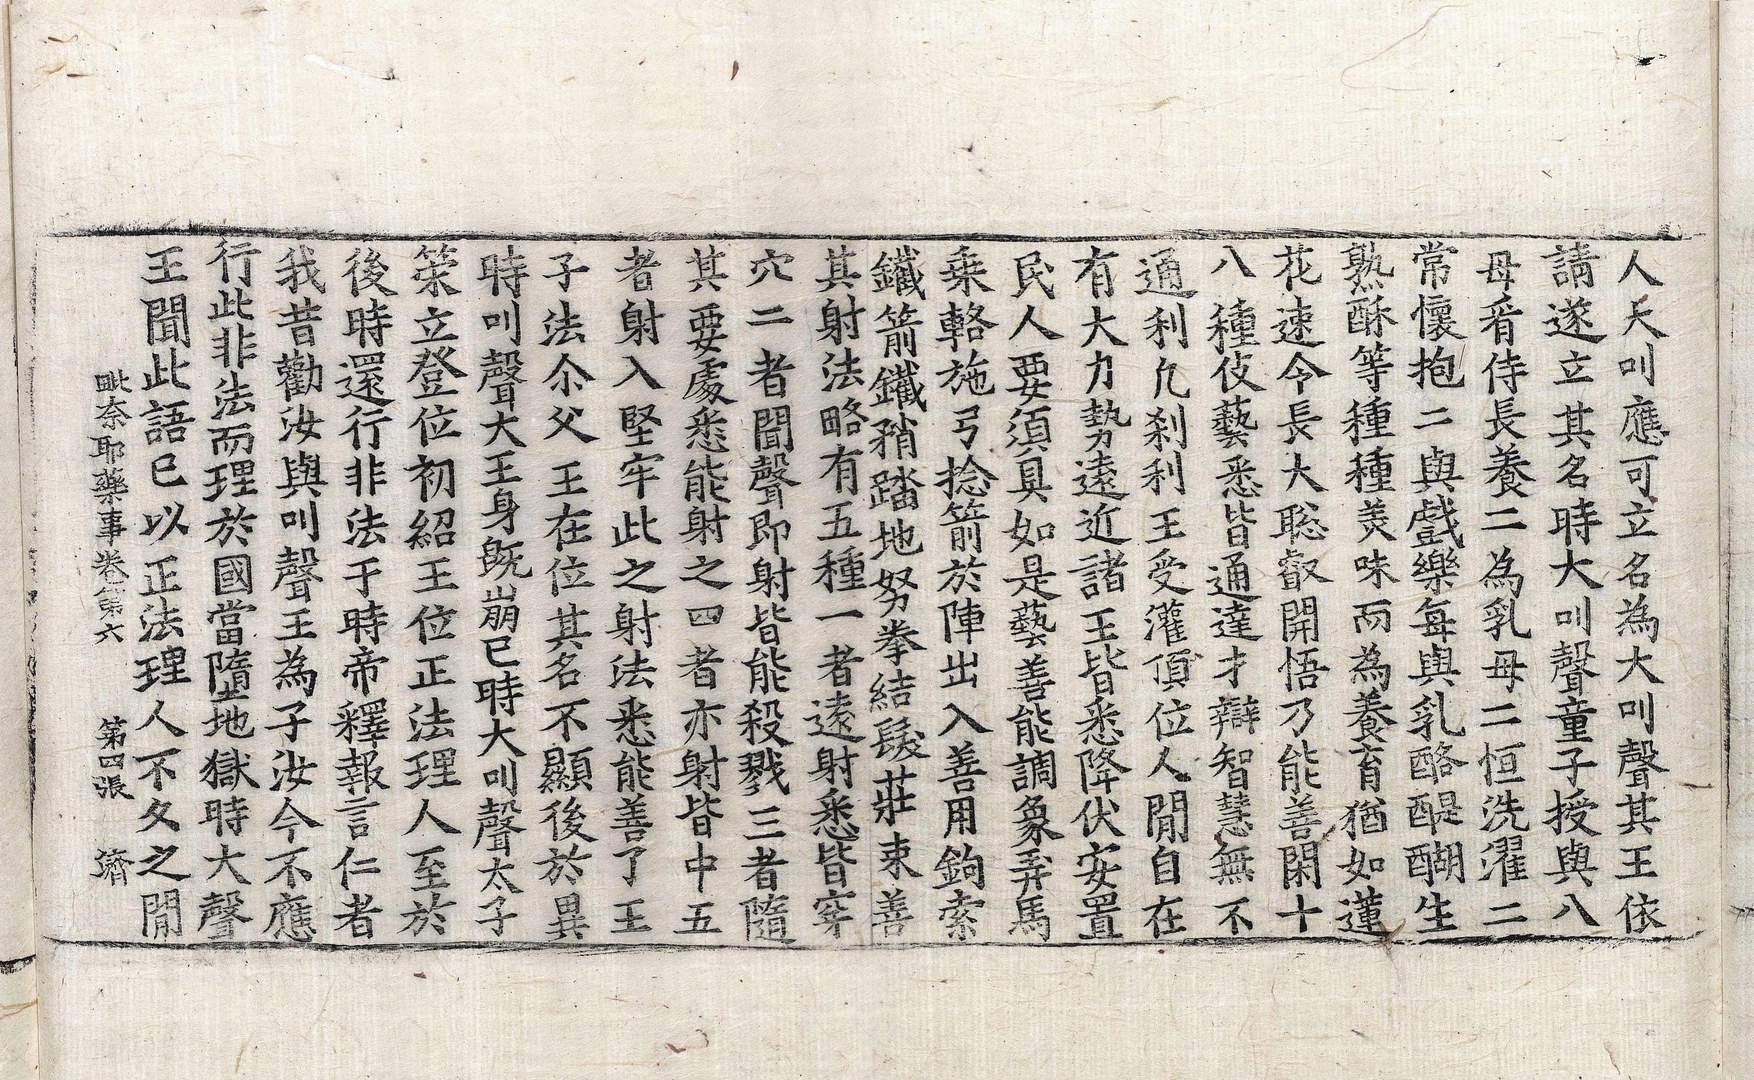 人夭叫應可立名為大叫聲其王依
請遂立其名時大叫聲童子授與八
母看侍長養二為乳母二恒洗濯二
常懷抱二與戲樂每與乳酪醍醐生
熟酥等種種美味而為養育猶如蓮
花速令長大聡叡開悟乃能善閑十
八種伎藝悉皆通達才辯智慧無不
通利凢剎利王受灌頂位人閒自在
有大力勢遠近諸王皆悉降伏安置
民人要須具如是藝善能調象弄馬
乗輅施弓捻箭於陣出入善用鉤索
鐵箭鐵矟踏地努拳結髮莊束善
其射法略有五種一者遠射悉皆穿
穴二者聞聲即射皆能殺戮三者隨
其要處悉能射之四者亦射皆中五
者射入堅牢此之射法悉能善了王
子法尒父王在位其名不顯後於異
時叫聲大王身旣崩已時大叫聲太子
策立登位初紹王位正法理人至於
後時還行非法于時帝釋報言仁者
我昔勸汝與叫聲王為子汝今不應
行此非法而理於國當墮地獄時大聲
王聞此語已以正法理人不久之閒
毗奈耶藥事卷第六 第四張